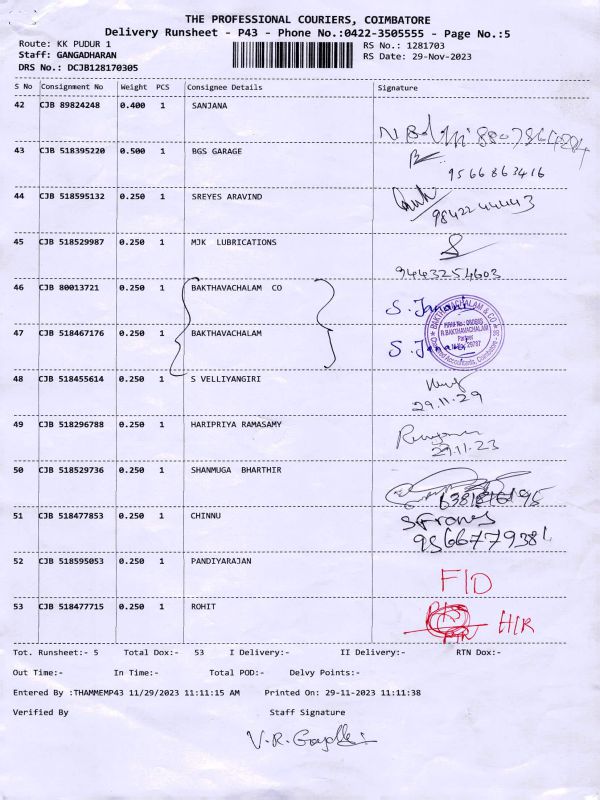 THE PROFESSIONAL COURIERS, COIMBATORE
Delivery Runsheet - P43 - Phone No.:0422-3505555 - Page No.:5
Route: KK PUDUR 1 RS No.: 1281703
Staff: GANGADHARAN RS Date: 29-Nov-2023
DRS No.: DCJB128170305
S No Consignment No Weight PCS Consignee Details Signature
42 CJB 89824248 0.400 1 SANJANA
43 CJB 518395220 0.500 1 BGS GARAGE
9566863416
44 CJB 518595132 0.250 1 SREYES ARAVIND
9842244443
45 CJB 518529987 0.250 1 MJK LUBRICATIONS
9443254603
46 CJB 80013721 0.250 1 BAKTHAVACHALAM CO
S. Janani
BAKTHAVACHALAM & CO
R.BAKTHAVACHALAM
Partner
47 CJB 518467176 0.250 1 BAKTHAVACHALAM
S. Janani
48 CJB 518455614 0.250 1 S VELLIYANGIRI
29.11.29
49 CJB 518296788 0.250 1 HARIPRIYA RAMASAMY
29.11.23
50 CJB 518529736 0.250 1 SHANMUGA BHARTHIR
51 CJB 518477853 0.250 1 CHINNU
9566779381
52 CJB 518595053 0.250 1 PANDIYARAJAN
F/D
53 CJB 518477715 0.250 1 ROHIT
H/R
Tot. Runsheet:- 5 Total Dox:- 53 I Delivery:- II Delivery:- RTN Dox:-
Out Time:- In Time:- Total POD:- Delvy Points:-
Entered By :THAMMEMP43 11/29/2023 11:11:15 AM Printed On: 29-11-2023 11:11:38
Verified By Staff Signature